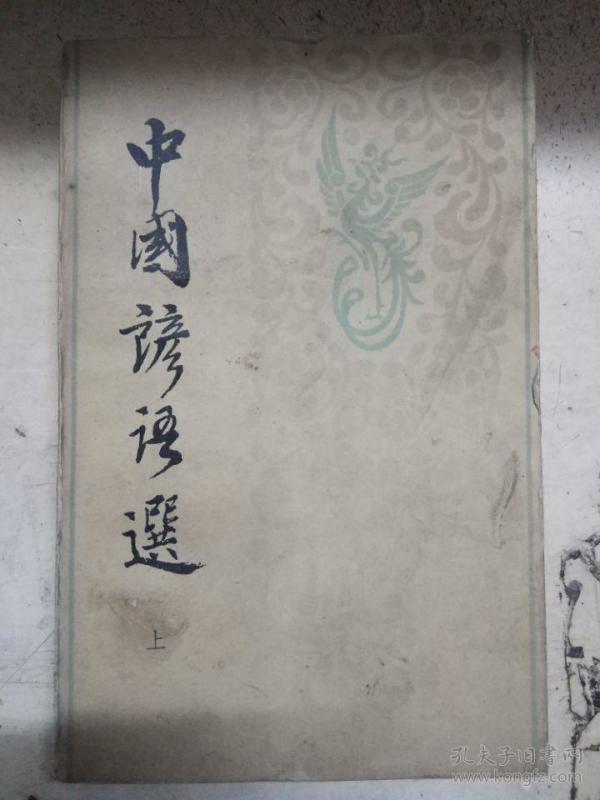 中國諺语選
上
孔夫子旧书网
www.kongfz.com